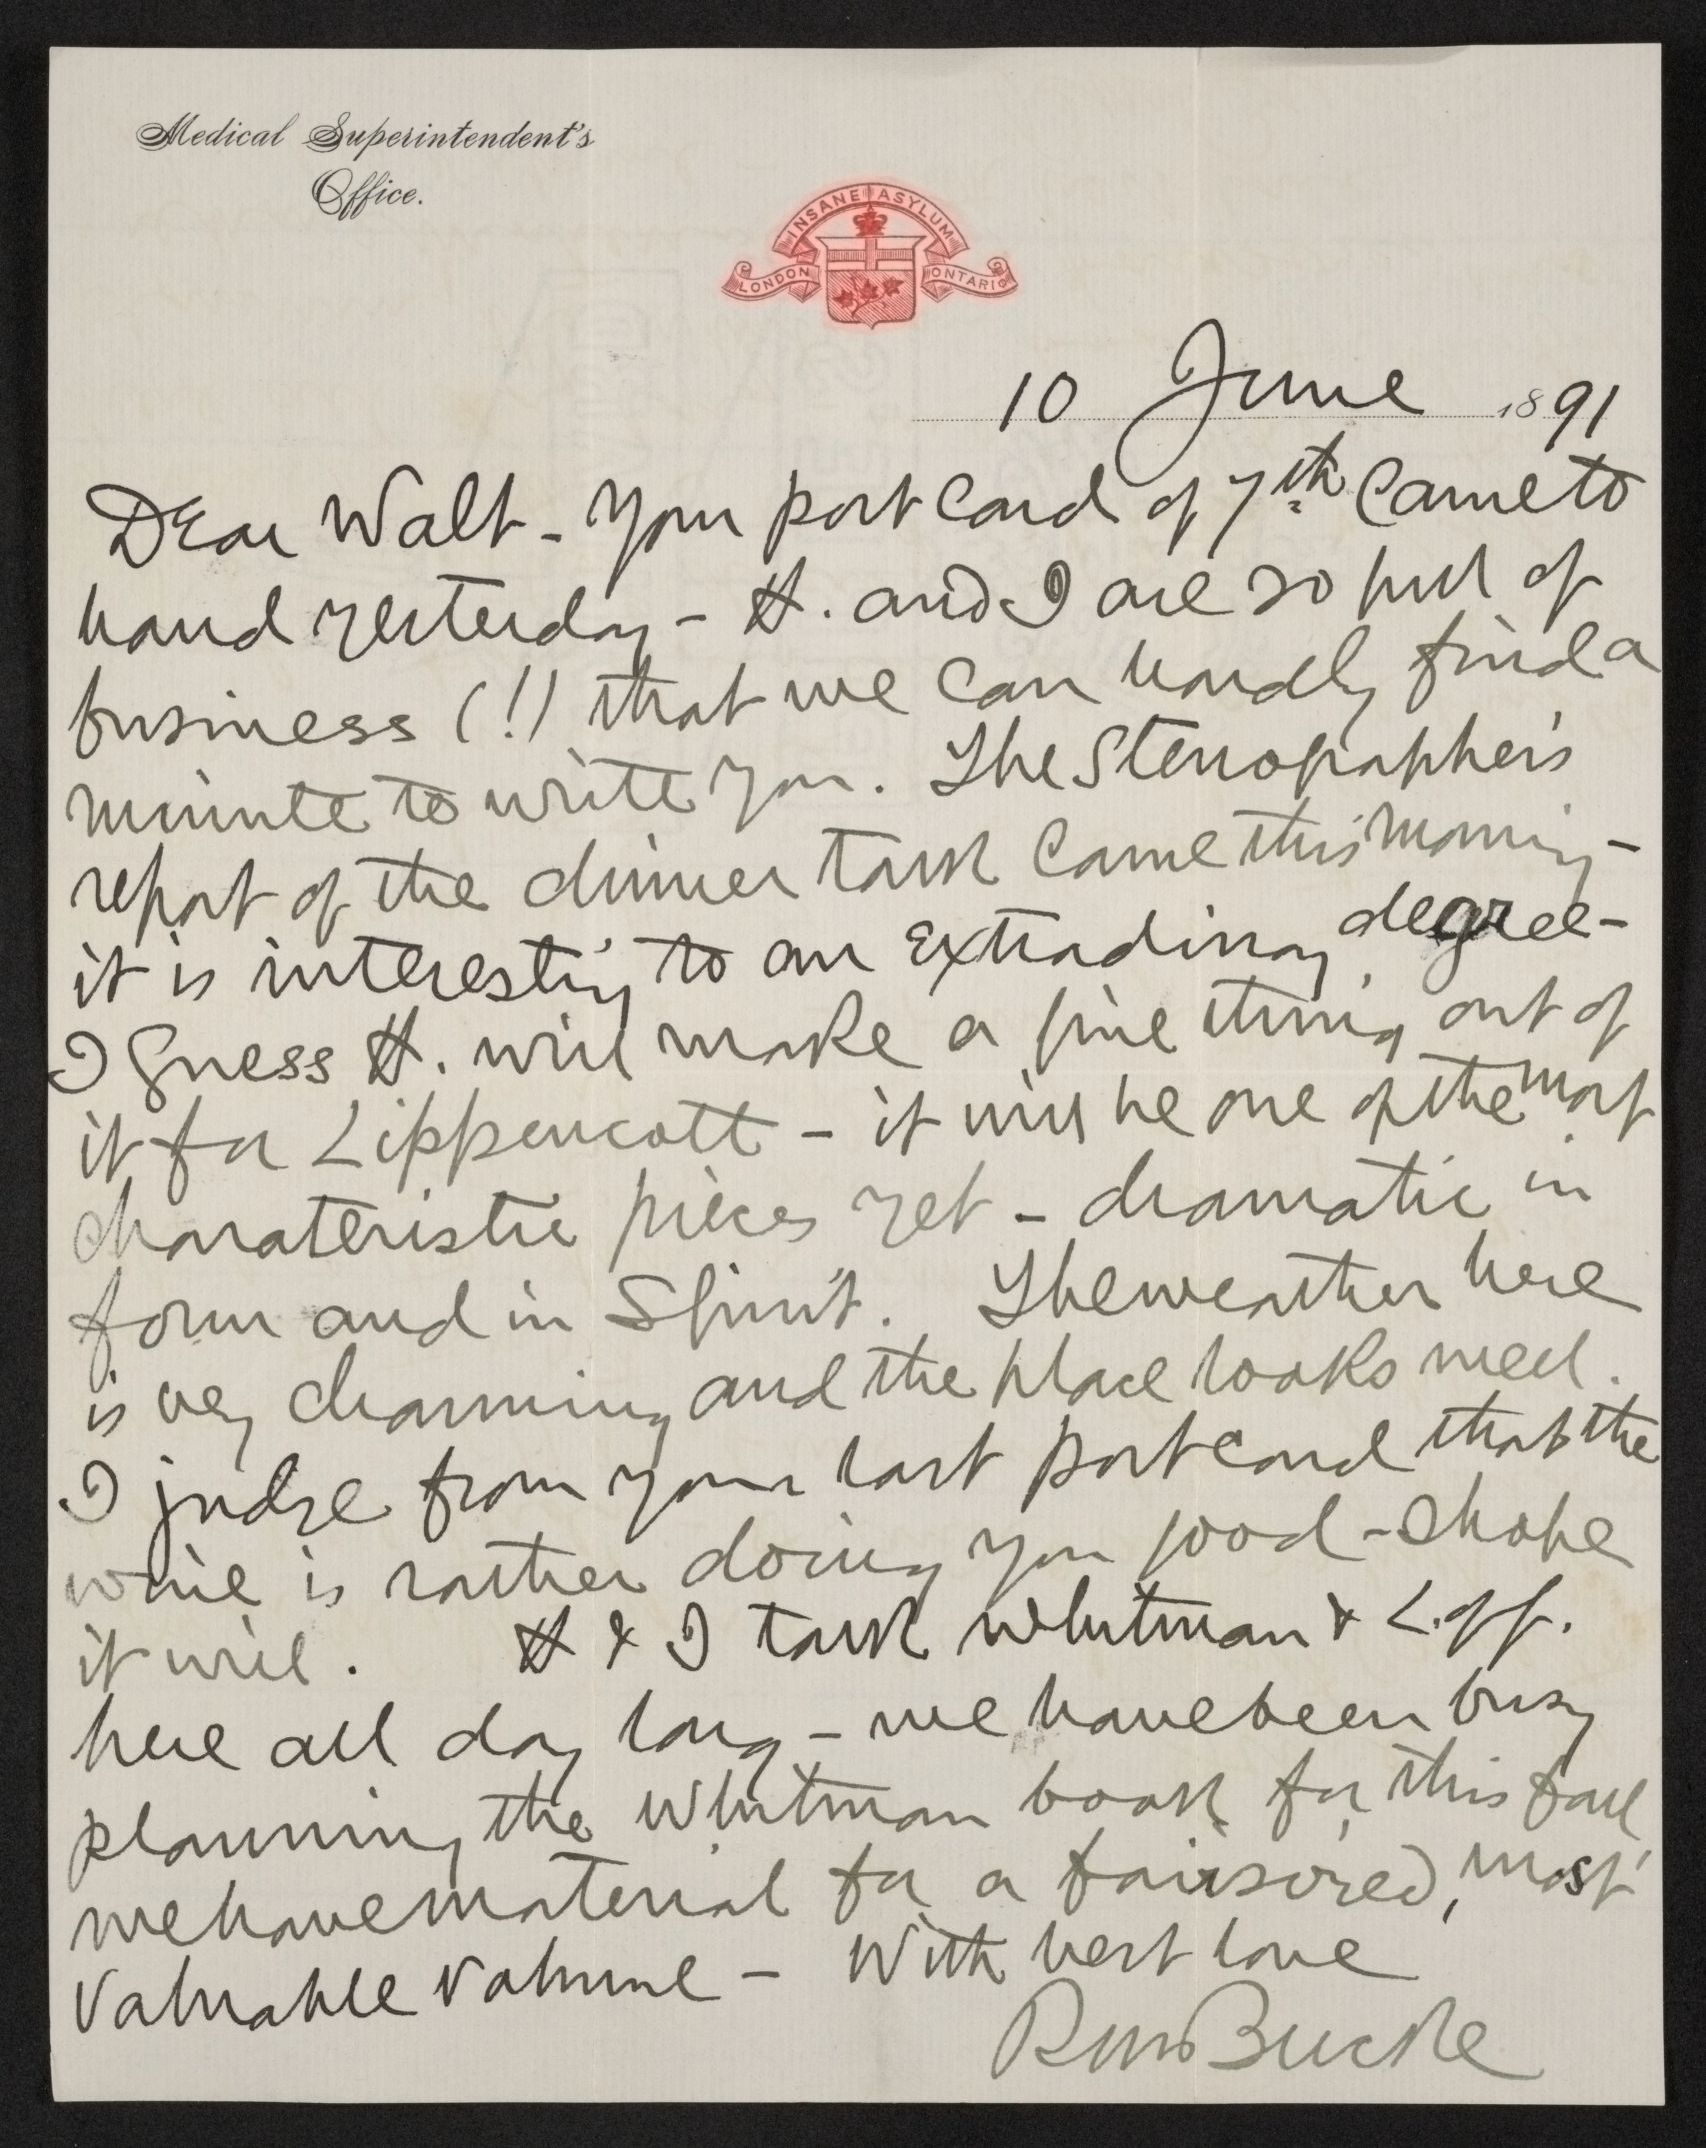 Medical Superintendent's
Office.
INSANE ASYLUM
LONDON ONTARIO
10 June 1891
Dear Walt - Your post card of 7th came to
hand yesterday - H. and I are so full of
business (!) that we can hardly find a
minute to write you. The Stenographer's
report of the dinner talk came this morning -
it is interesting to an extradinary degree -
I guess H. will make a fine thing out of
it for Lippencott - it will be one of the most
charateristic pieces yet - dramatic in
form and in spirit. The weather here
is very charming and the place looks well.
I judge from your last post card that the
wine is rather doing you good - I hope
it will. H & I talk Whitman & L. of G.
here all day long - we have been busy
planning the Whitman book for this fall
we have material for a fairsized, most
valuable volume - With best love
RM Bucke